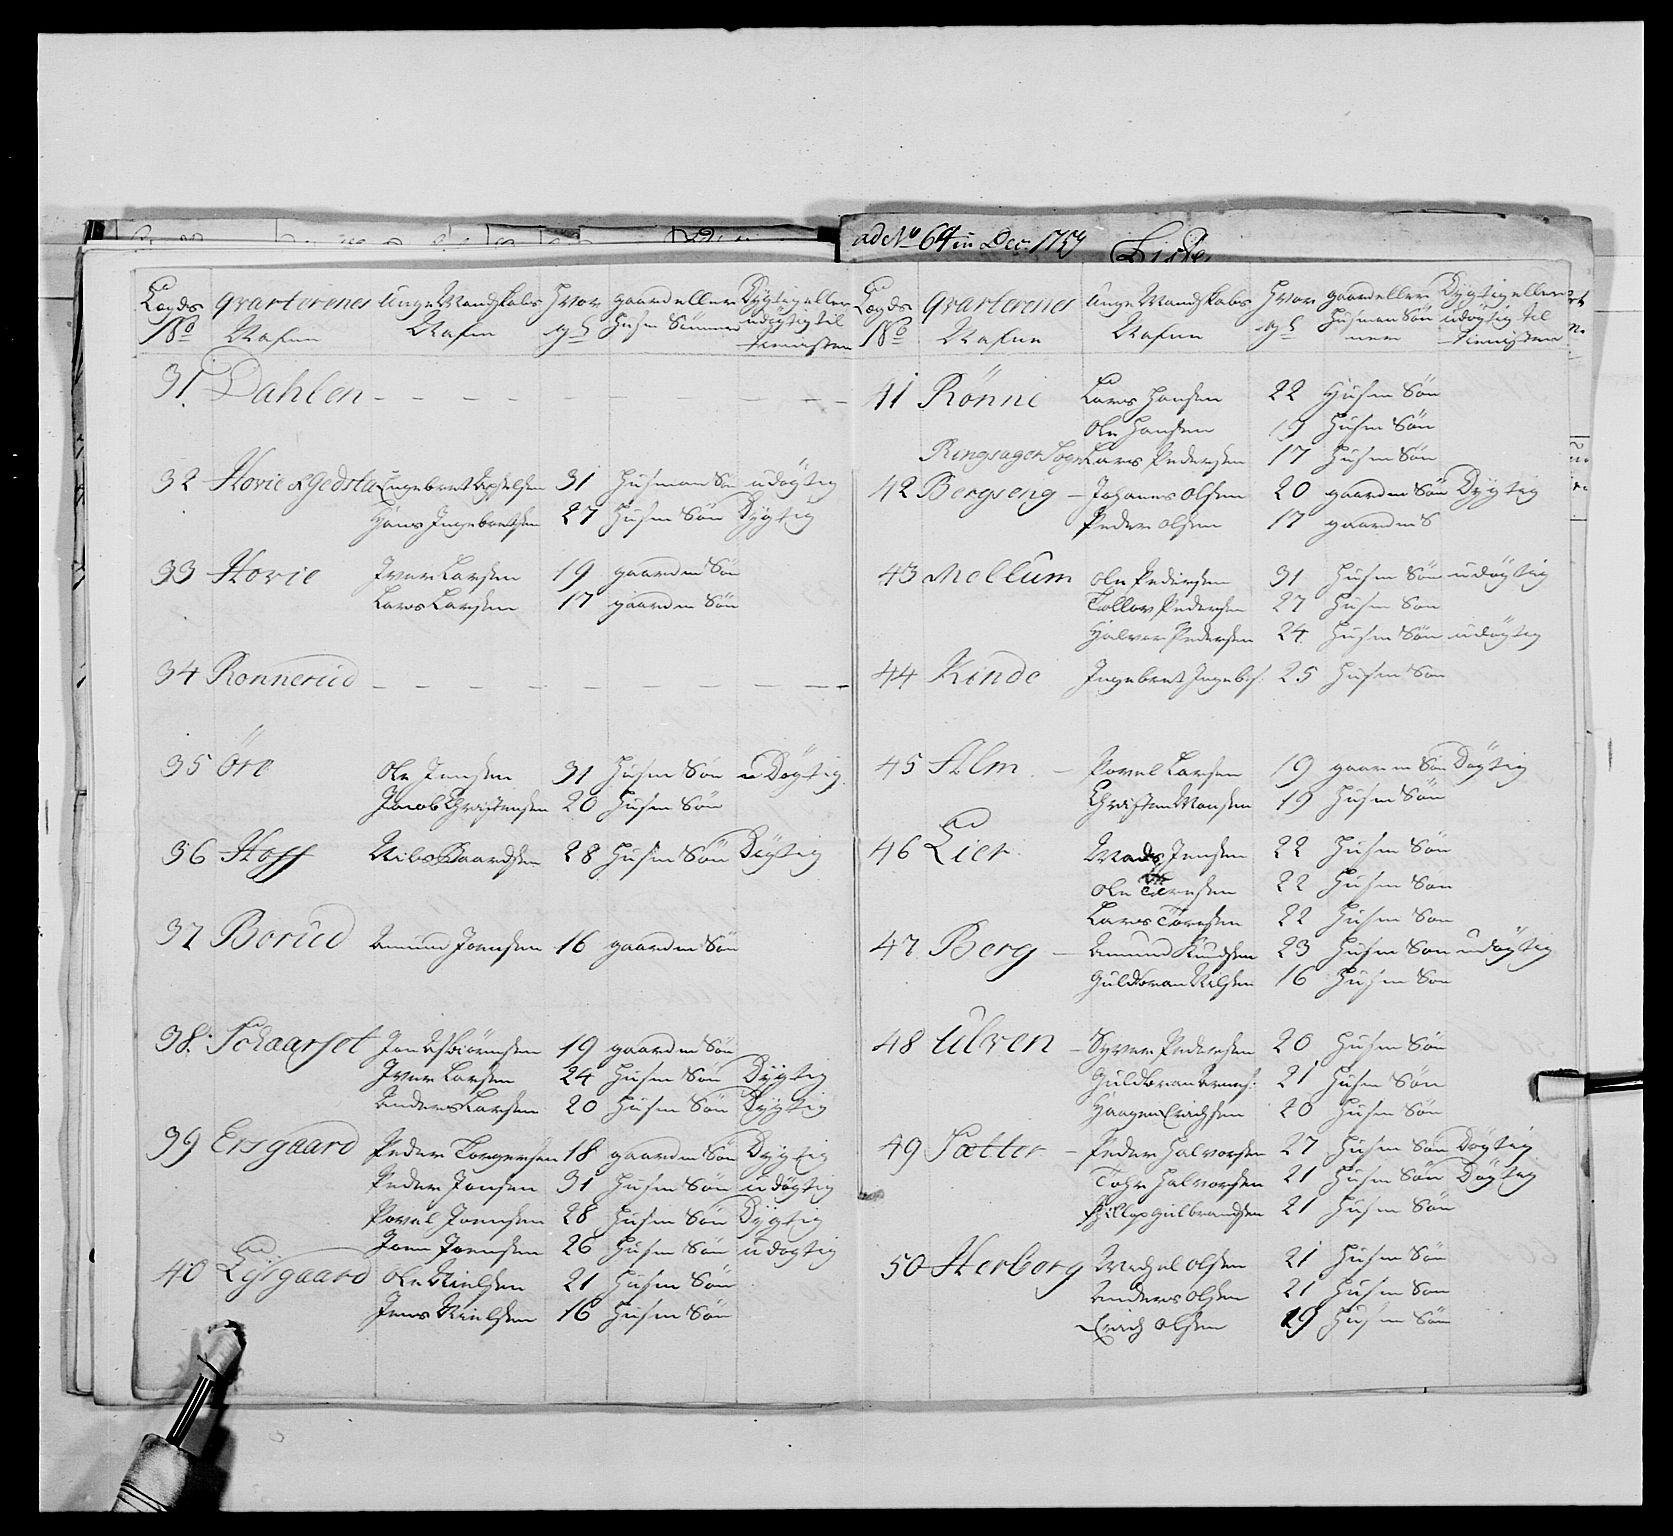 ad No 64 in Dec: 1754
Lægds No qvarterenes Nafne unge Mandskabs Nafne hvor gl: gaard eller Husm Sønner Dygtig eller udygtig til tienisten
31. Dahlen - - - - - - - - -
32 Hovie Engebret 31 Husmans Sn udögtig
Hans Ingebretsen 27 Husm Sön Dygtig
33 Hovie Iver Larsen 19 gaardm Sön
Lars Larsen 17 gaardm Sön
34 Ronnerud - - - - - - - - -
35 Öre Ole Jensen 31 Husm Sön uDögtig
Jacob Christensen 20 Husm Sön
36 Hoff Nils Baardsen 28 Husm Sön Dygtig
37 Borud Amund Joensen 16 gaardm Sön
38. Schaarset Jon Asbiörnsen 19 gaardm Sön
Iver Larsen 24 Husm Sön Dygtig
Anders Larsen 20 Husm Sön Dygtig
39 Ersgaard Peder Torgersen 18 gaardm Sön Dygtig
Peder Jonsen 31 Husm Sön udögtig
Povel Joensen 28 Husm Sön Dygtig
Joen Joensen 26 Husm Sön udögtig
40 Lysgaard Ole Nielsen 21 Husm Sön
Jens Nielsen 16 Husm Sön
Lægds No qvarterenes Nafne unge Mandskabs Nafne hvor gl: gaard eller Husmen Sönner Dygtig eller udögtig til tienisten
41 Rönne Lars Hansen 22 Husm Sön
Ole Hansen 19 Husm Sön
Ringsager Sogn Lars Pedersen 17 Husm Sön
42 Bergseng - Johanes Olsen 20 gaardm Sön Dygtig
Peder Olsen 17 gaardm S
43 Mellum Ole Pedersen 31 Husm Sön udögtig
Tollov Pedersen 27 Husm Sön
Halvor Pedersen 24 Husm Sön udögtig
44 Kinde Ingebret Ingebs: 25 Husm Sön
45 Alm - Povel Larsen 19 gaarm Sön Dögtig
Christen Monsen 19 Husm Sön
46 Lier Mads Jensen 22 Husm Sön
Ole 22 Husm Sön
Lars Toresen 22 Husm Sön
47 Berg - Amund Knudsen 23 Husm Sön udögtig
Guldbran Nilsen 16 Husm Sön
48 Ulven - Syver Pedersen 20 Husm Sön
Guldbran 21 Husm Sön
Haagen Erichsen 20 Husm Sön
49 Sætter - Peder Halvorsen 27 Husm Sön Dögtig
Tosten Halvorsen 21 Husm Sön Dögtig
Phillop Gulbrandsen 21 Husm Sön
50 Herborg Michel Olsen 21 Husm Sön
Anders Olsen 21 Husm Sön
Erich Olsen 19 Husm Sön